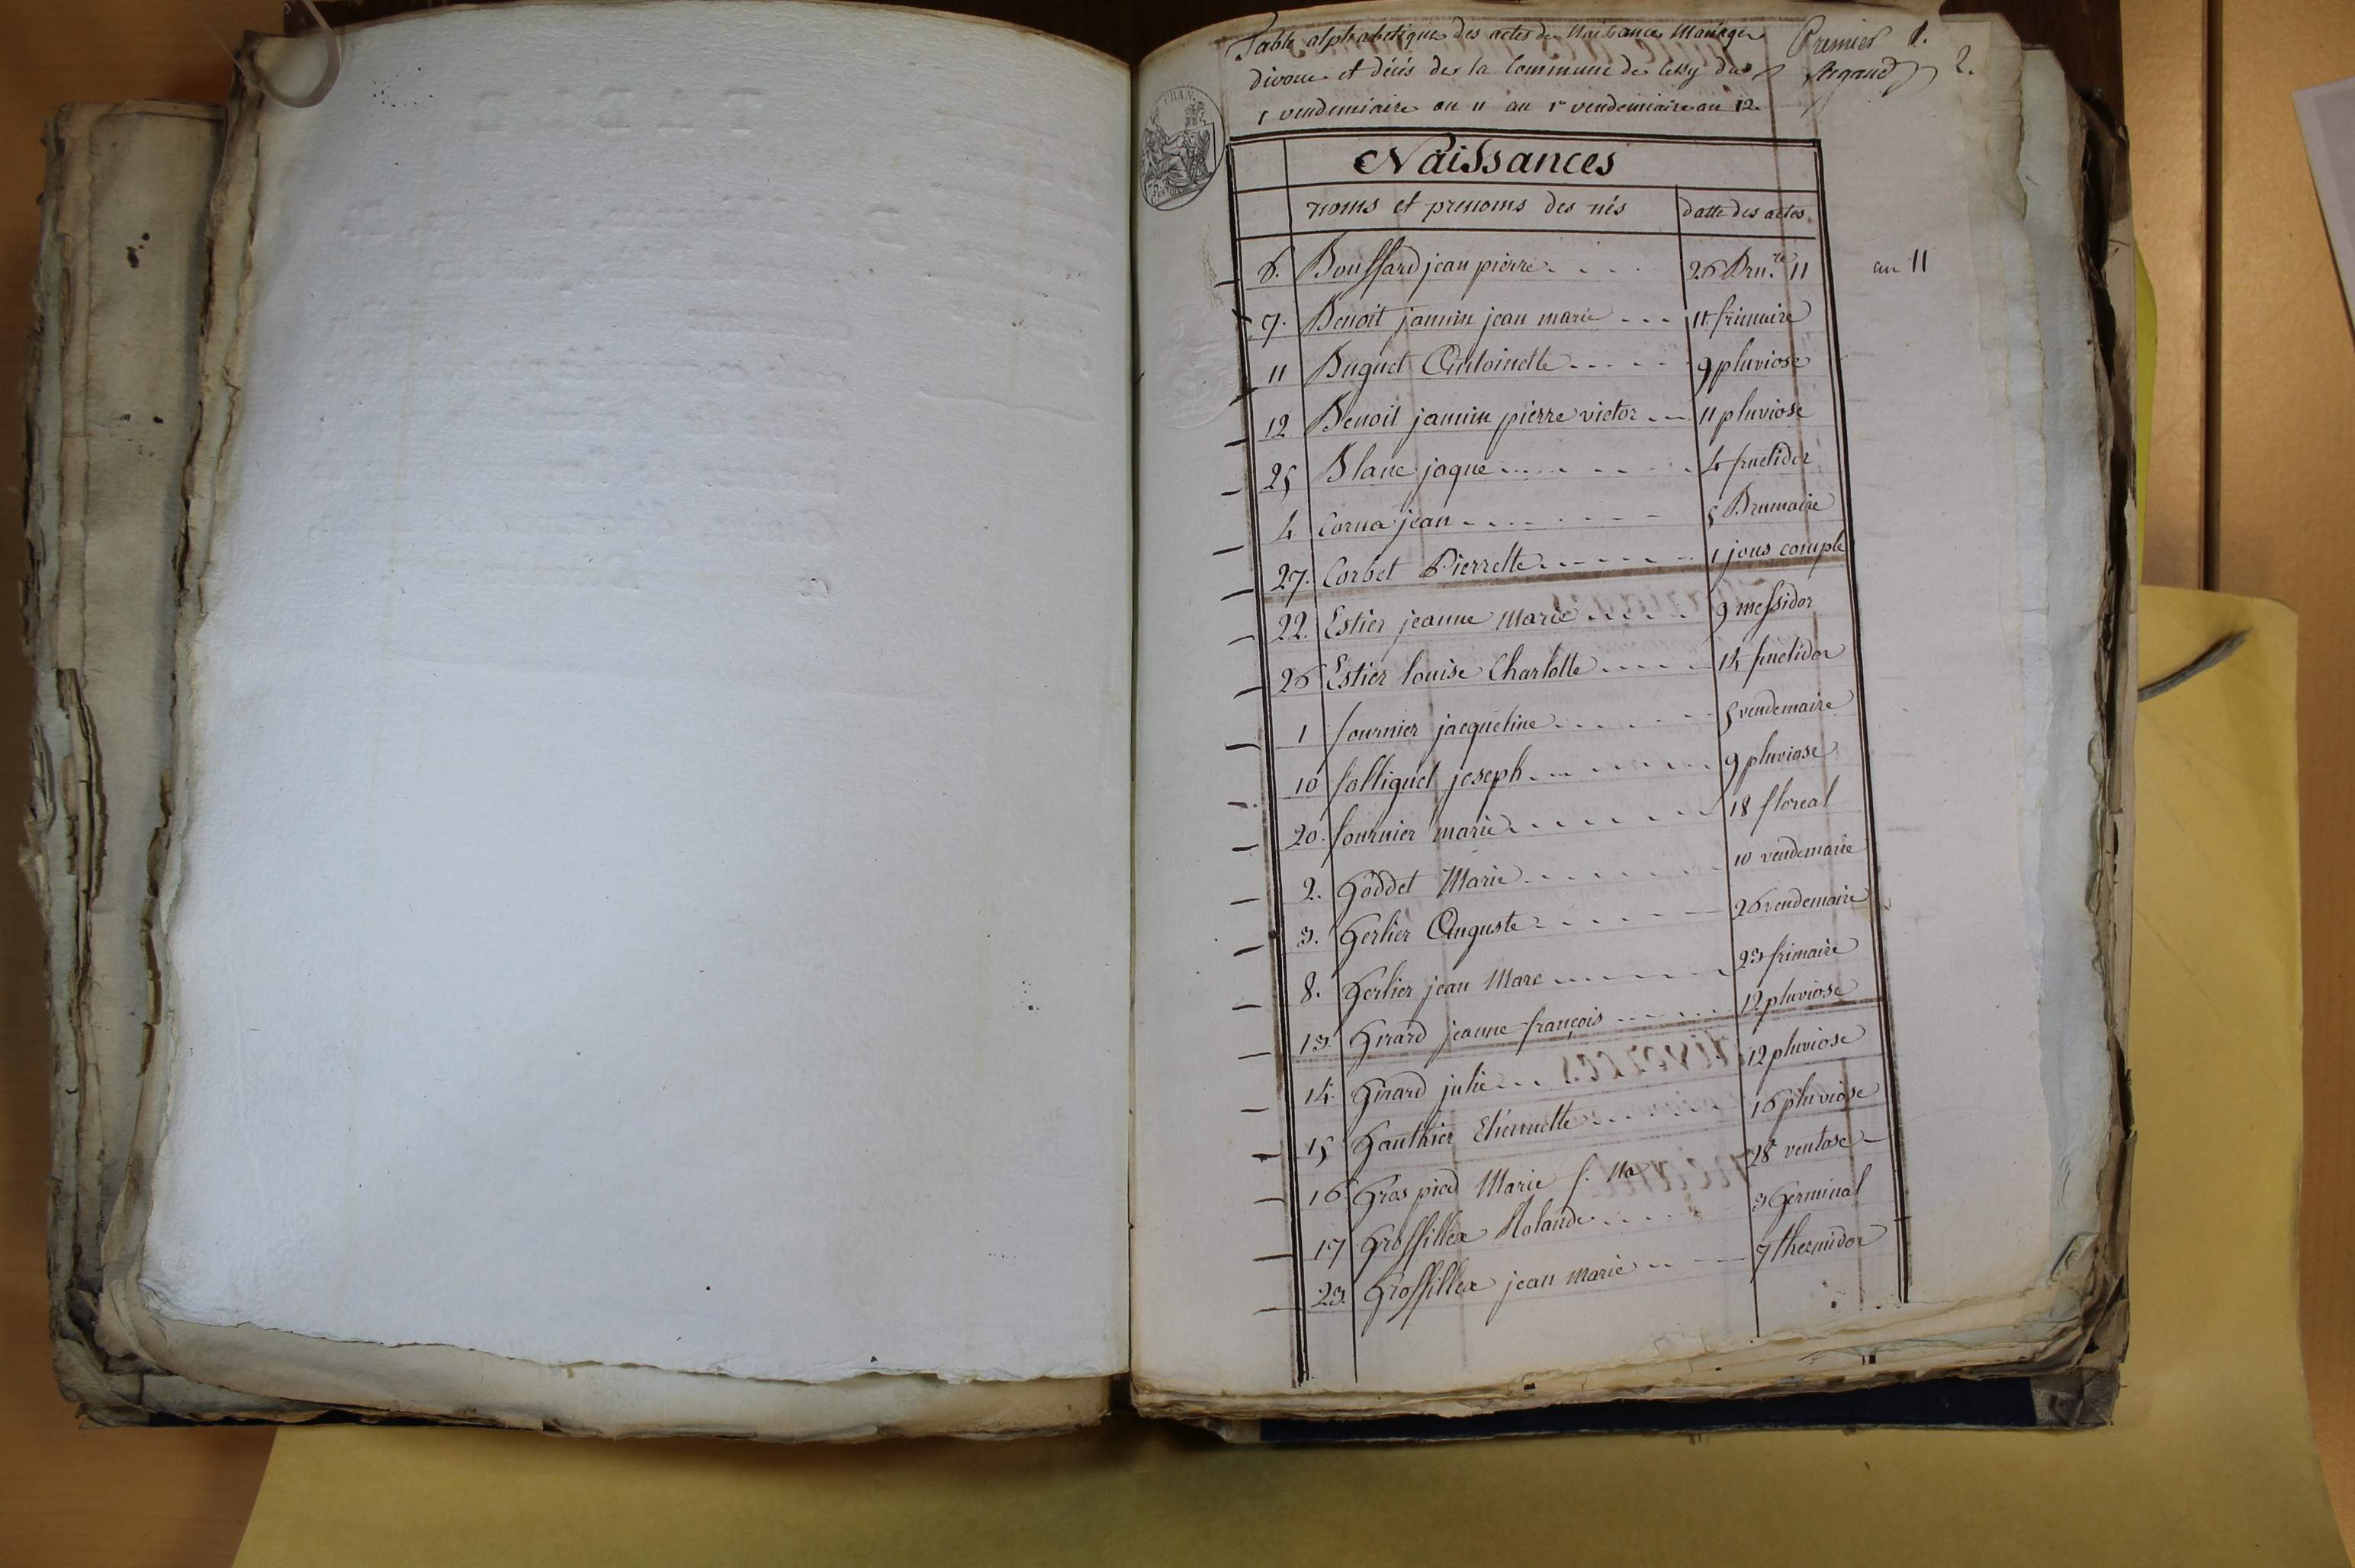 Table alphabetique des actes de Naissance Mariage
divorce et décès de la Commune de Cessy du
1 vendemiaire an 11 au 1er vendemiaire an 12
Premier 1.
2.
Naissances
noms et prenoms des nés datte des actes
6. Boussard jean pierre 26 Bru.re 11
an 11
7. Benoit jannin jean marie 11 frimaire
11 Buguet Antoinette 9 pluviose
12 Benoit jannin pierre victor 11 pluviose
25 Blanc jaque 4 fructidor
4 Cornu jean 5 Brumaire
27. Corbet Pierrette 1 jous comple
22. Estier jeanne Marie 9 messidor
26 Estier louise Charlotte 14 fructidor
1 fournier jacqueline 5 vendemaire
10 folliguet joseph 9 pluviose
20. fournier marie 18 floreal
2. Goddet Marie 10 vendemaire
3. Gerlier Auguste 26 vendemaire
8. Gerlier jean Marc 23 frimaire
13. Girard jeanne françois 12 pluviose
14. Girard julie 12 pluviose
15 Gauthier Etiennette 16 pluviose
16. Gros pied Marie f. 28 ventose
17 Grossillex Rolande 3 Germinal
23. Grossillex jean marie 7 thermidor